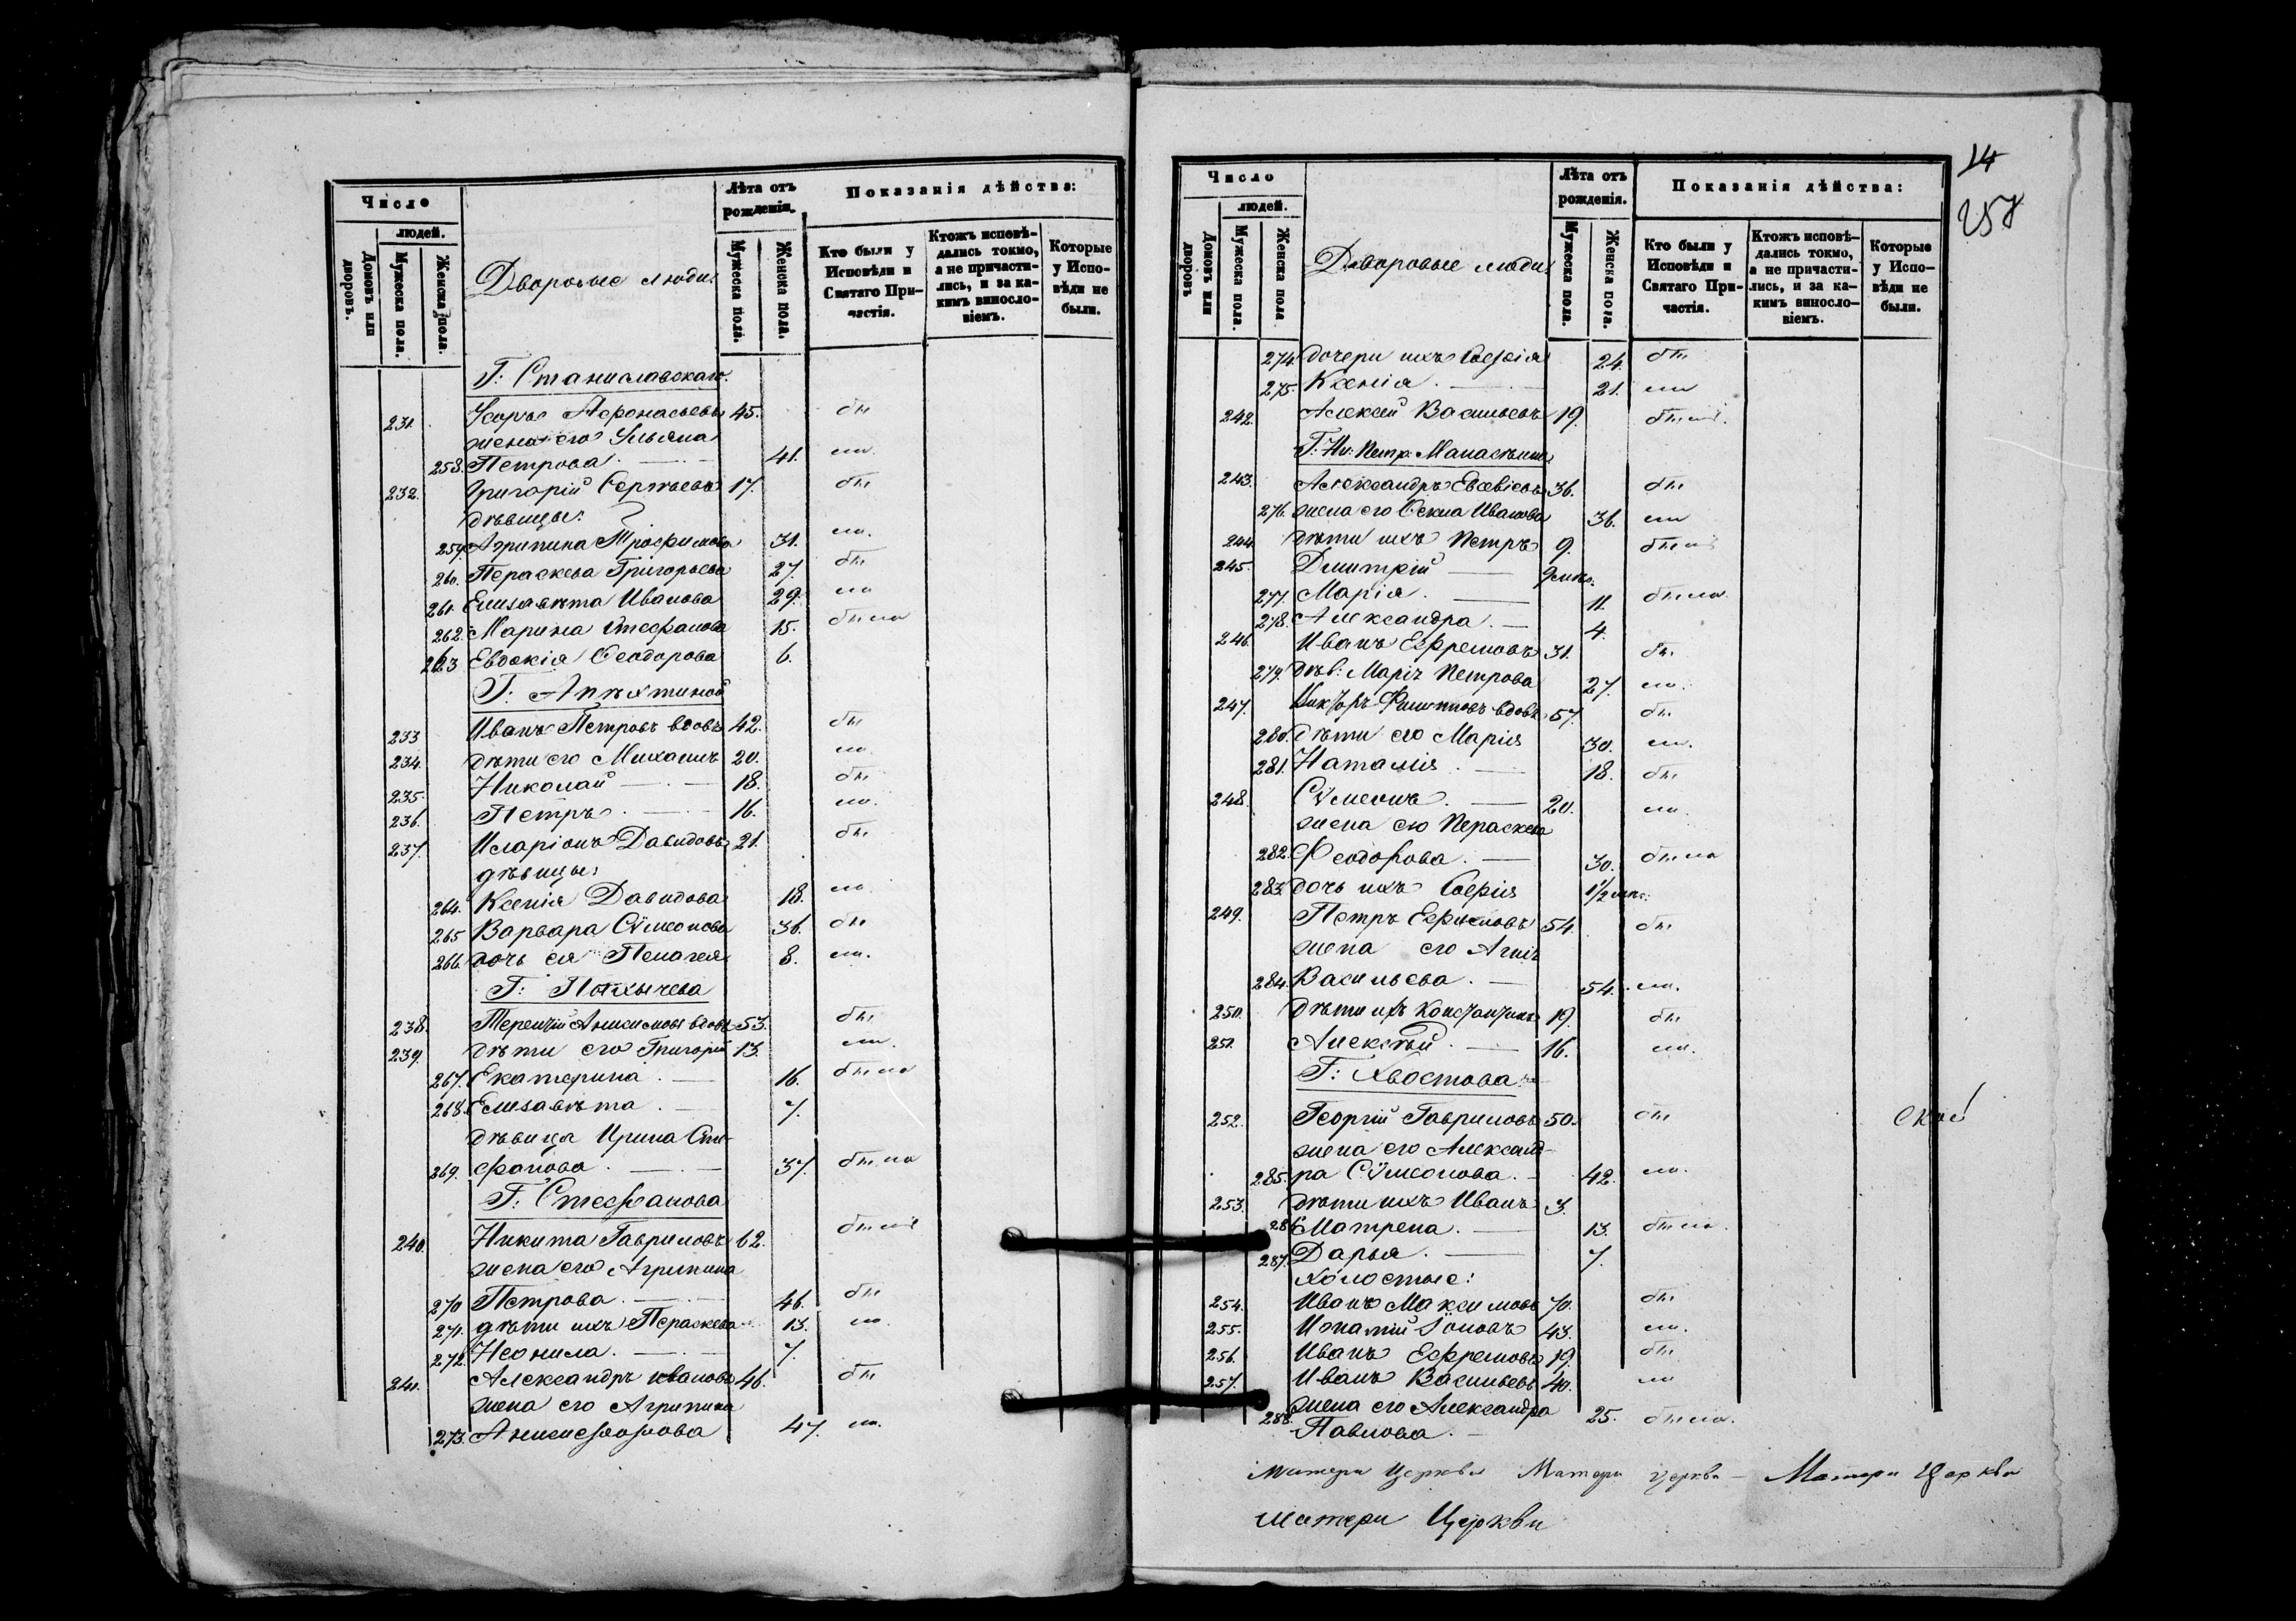 Число
людей.
Домовъ или дворовъ.
Мужеска пола.
Женска пола.
Дворовые люди.
Лѣта отъ рожденія.
Мужеска пола.
Женска пола.
Показанія дѣйства:
Кто были у Исповѣди и Святаго Причастія.
Ктожъ исповѣдались токмо, а не причастились, и за какимъ винословіемъ.
Которые у Исповѣди не были.
Г: Станиславскаго.
231. Егоръ Афонасьевъ 45.
жена его Ульяна
258. Петрова 41.
232. Григорій Сергѣевъ 17.
дѣвицы:
259. Агрипина Трофимова 31.
260. Параскева Григорьева 27.
261. Елизавѣта Иванова 29.
262. Марина Стефанова 15.
263 Евдокія Ѳеодорова 6.
Г: Апухтиной
233 Иванъ Петровъ вдовъ 42.
234. дѣти его Михаилъ 20.
235. Николай 18.
236. Петръ 16.
237. Иларіонъ Давидовъ 21.
дѣвицы:
264. Ксенія Давидова 18.
265 Варвара Сѵмеонова 36.
266. дочь ея Пелагея 8.
Г:
238. Терентій Анисимовъ вдовъ 53.
239. дѣти его Григорій 13.
267. Екатерина 16.
268. Елизавѣта 7.
дѣвица Ирина Сте-
269. фанова 37.
Г: Стефанова
240. Никита Гавриловъ 62.
жена его Агрипина
270 Петрова 46.
271. дѣти ихъ Параскева 13.
272. Неонила 7.
241. Александръ Ивановъ 46.
жена его Агрипина
273. 47.
14
258
Число
людей.
Домовъ или дворовъ
Мужеска пола.
Женска пола
Дворовые люди
Лѣта отъ рожденія.
Мужеска пола.
Женска пола.
Показанія дѣйства:
Кто были у Исповѣди и Святаго Причастія.
Ктожъ исповѣдались токмо, а не причастились, и за какимъ винословіемъ.
Которые у Исповѣди не были.
274. дочери ихъ Софія 24.
275. Ксенія 21.
242. Алексѣй Васильевъ 19.
243. Александръ Евсевіевъ 36.
276. жена его Иванова 36.
244. дѣти ихъ Петръ 9.
245. Димитрій
277. Марія 11.
278. Александра 4.
246. Иванъ Ефремовъ 31.
279. дѣв: Марія Петрова 27.
247. Викторъ Филиповъ вдовъ 57.
280. дѣти его Марія 30.
281. Наталія 18.
248. Сѵмеонъ 20.
жена его Параскева
282. Ѳеодорова 30.
283. дочь ихъ Софія 1/2
249. Петръ Ефремовъ 54
жена его
284. Васильева 54.
250. дѣти ихъ Константинъ 19.
251. Алексѣй 16.
Г: Хвостова
252. Георгій Гавриловъ 50.
жена его Александ-
285. ра Сѵмеонова 42.
253. дѣти ихъ Иванъ 3.
286. Матрена 13.
287. Дарья 7.
холостые:
254. Иванъ Максимовъ 70.
255. 43.
256. Иванъ Ефремовъ 19.
257. Иванъ Васильевъ 40.
жена его Александра
288. Павлова 25.
Матери Церкви Матери Церкви — Матери Церкви
Матери Церкви